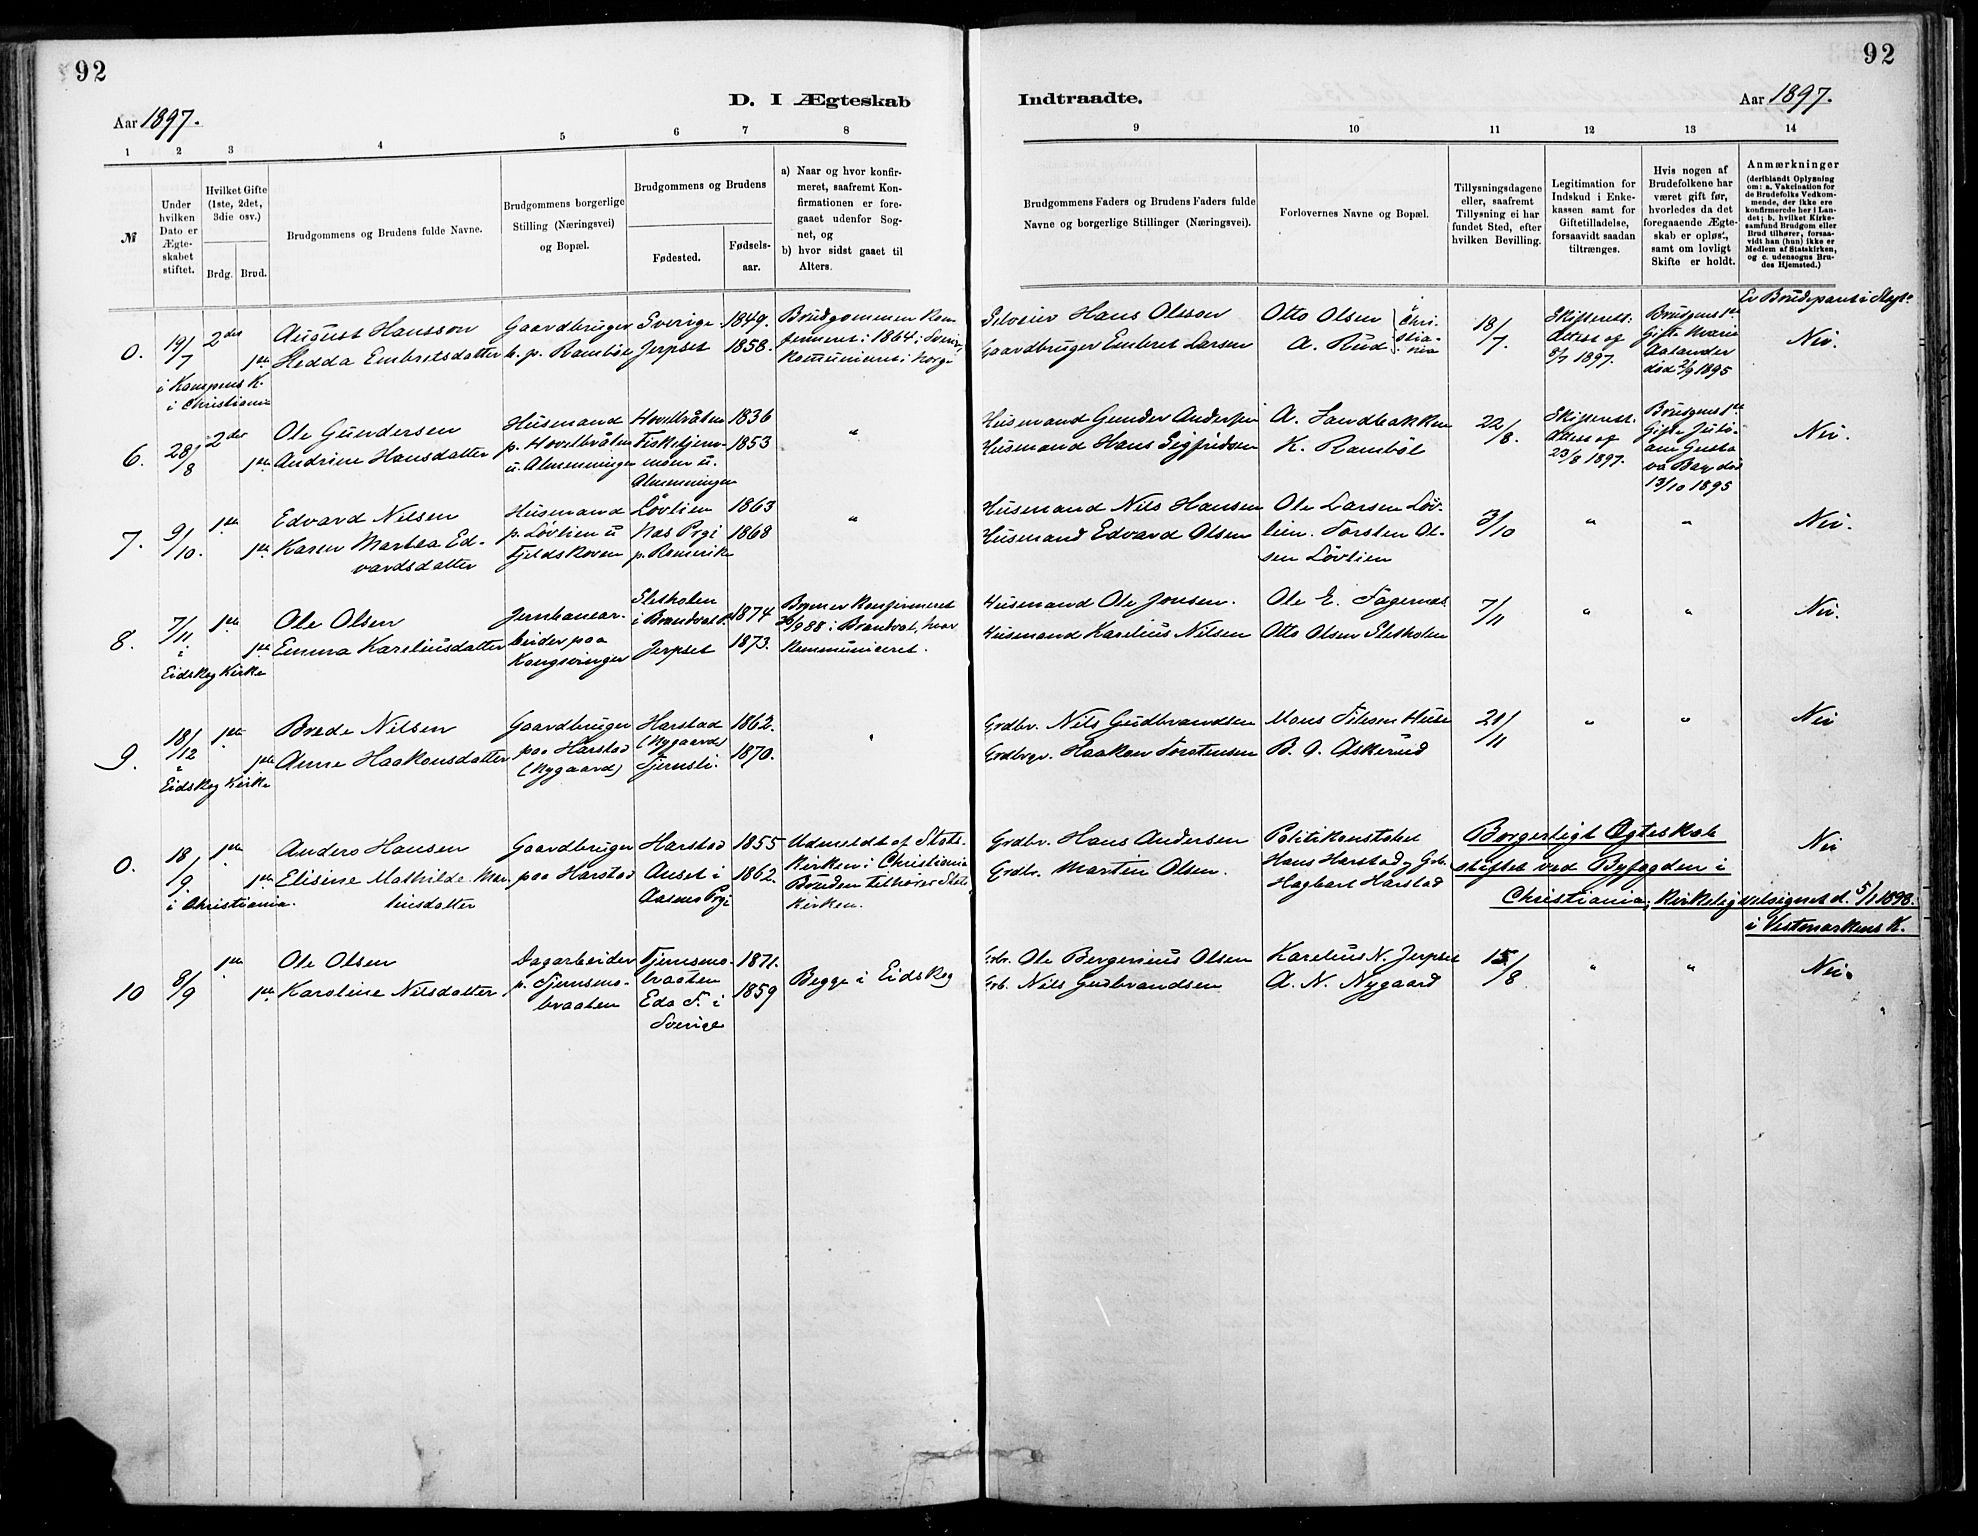 92
D. I Ægteskab
Aar 1897.
1 2 3 4 5 6 7 8
№
Under hvilken Dato er Ægteskabet stiftet.
Hvilket Gifte (1ste, 2det, 3die osv.)
Brdg. Brud.
Brudgommens og Brudens fulde Navne.
Brudgommens borgerlige Stilling (Næringsvei) og Bopæl.
Brudgommens og Brudens
Fødested.
Fødselsaar.
a) Naar og hvor konfirmeret, saafremt Konfirmationen er foregaaet udenfor Sognet, og
b) hvor sidst gaaet til Alters.
0. 19/7 2det August Hansson Gaardbruger Sverige 1849. Brudgommen Kon
1ste Hedda Embretsdatter h. p. Rambøl Jerpset 1858. firmeret i 1864 i Sverig,
i Kampens K. Kommuniceret i Norge
i Christiania
6. 28/8 2det Ole Gundersen Husmand Hovelbråten 1836 "
1ste Andrine Hansdatter p. Hovelbråten Fisketjern- 1853
u. Almenningen moen u.
Almenningen
7. 9/10. 1ste Edvard Nilsen Husmand Løvlien 1863 "
1ste Karen Martea Ed- p. Løvlien u Nas Prgj 1868
vardsdatter Fjeldskoven p. Romerike
8. 7/11 1ste Ole Olsen Jernbanear- Sletholen i Brandval S. 1874 Brgmen Konfirmeret
1ste Emma Kareliusdatter beider paa Jerpset 1873. 30/9 88 i Brandval, hvor
i Eidskog Kirke Kongsvinger Kommuniceret.
9. 18/12 1ste Brede Nilsen Gaardbruger Harstad 1862. "
1ste Anne Haakonsdatter paa Harstad (Nygaard)
i Eidskog Kirke (Nygaard) Tjernsli. 1870.
0. 18/9 1ste Anders Hansen Gaardbruger Harstad 1855 Udmeldt af Stats-
1ste Elisine Mathilde Mar- paa Harstad Auset i 1862. kirken i Christiania
i Christiania. tinsdatter Aasens Prgj Bruden tilhører Stats
kirken.
10 8/9 1ste Ole Olsen Dagarbeider Tjernsmo- 1871. Begge i Eidskog
1ste Karoline Nilsdatter p. Tjernsmo- braaten 1859
braaten Eda S. i
Sverige
92
Indtraadte.
Aar 1897.
9 10 11 12 13 14
Brudgommens Faders og Brudens Faders fulde Navne og borgerlige Stillinger (Næringsvei).
Forlovernes Navne og Bopæl.
Tillysningsdagene eller, saafremt Tillysning ei har fundet Sted, efter hvilken Bevilling.
Legitimation for Indskud i Enkekassen samt for Giftetilladelse, forsaavidt saadan tiltrænges.
Hvis nogen af Brudefolkene har været gift før, hvorledes da det foregaaende Ægteskab er opløst, samt om lovligt Skifte er holdt.
Anmærkninger
(deriblandt Oplysning om: a. Vakcination for de Brudefolks Vedkommende, der ikke ere konfirmerede her i Landet; b. hvilket Kirkesamfund Brudgom eller Brud tilhører, forsaavidt han (hun) ikke er Medlem af Statskirken, og c. udensogns Brudes Hjemsted.)
Er Brudeparret i Slægt.
Hans Olsson Otto Olsen Christiania 18/7. Skifterets- Brudgms 1ste Nei.
Gaardbruger Embret Larsen A. Rud Attest af Gifte Marie
8/7 1897. Aalander
død 2/9 1895
Husmand Gunder Andersen A. Sandbakken 22/8. Skifterett. Brudgms 1ste Nei.
Husmand Hans Sigfridsen K. Rambøl Attest af Gifte Juli-
23/8 1897. ane Gusta
va Berg død
13/10 1895
Husmand Nils Hansen Ole Larsen Løv- 3/10 " " Nei.
Husmand Edvard Olsen lien. Torsten Ol-
sen Løvlien
Husmand Ole Jonsen. Ole E. Fagernæs 7/11 " " Nei.
Husmand Karelius Nilsen Otto Olsen Sletholen
Grdbr. Nils Gudbrandsen Mons Huse 21/11 " " Nei
Grdbrgr. Haakon Torstensen B. O. Askerud
Grdbr. Hans Andersen Politikonstabel Borgerligt Ægteskab Nei
Grdbr. Martin Olsen. Hans Harstad, Grb. stiftet ved Byfogden i
Hagbart Harstad Christiania, Kirkelig velsignet d. 5/1 1898.
i Vestmarkens K.
Grb. Ole Bergenius Olsen Karelius N. Jerpset 15/8 " " Nei.
Grb. Nils Gudbrandsen A. N. Nygaard